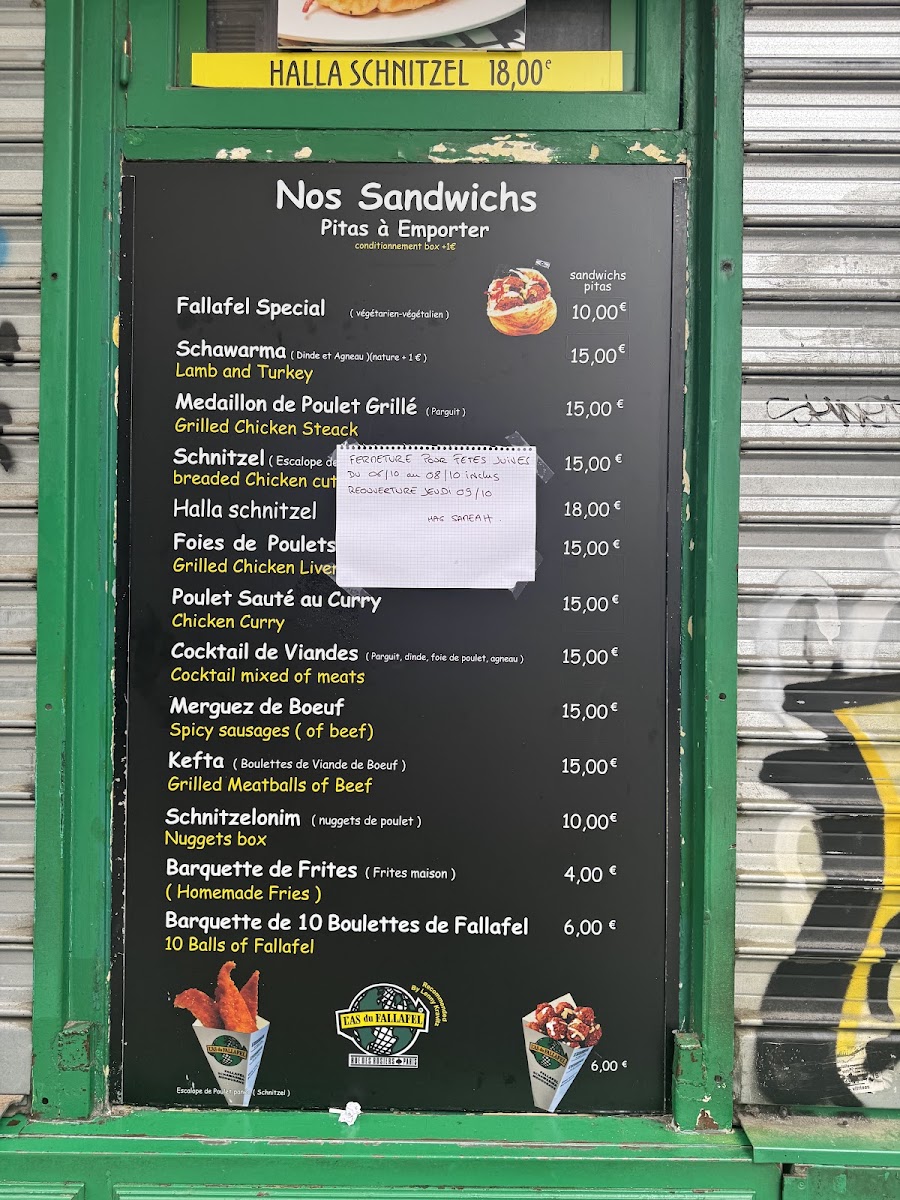 HALLA SCHNITZEL 18,00€
Nos Sandwichs
Pitas à Emporter
conditionnement box +1€
sandwichs
pitas
Fallafel Special ( végétarien-végétalien ) 10,00€
Schawarma ( Dinde et Agneau )(nature + 1 € ) 15,00€
Lamb and Turkey
Medaillon de Poulet Grillé ( Parguit ) 15,00 €
Grilled Chicken Steack
Schnitzel ( Escalope de 15,00 €
breaded Chicken cut
Halla schnitzel 18,00 €
Foies de Poulets 15,00 €
Grilled Chicken Liver
FERMETURE POUR FETES JUIVES
DU 06/10 au 08/10 inclus
REOUVERTURE JEUDI 09/10
HAG SAMEAH.
Poulet Sauté au Curry 15,00 €
Chicken Curry
Cocktail de Viandes ( Parguit, dinde, foie de poulet, agneau ) 15,00 €
Cocktail mixed of meats
Merguez de Boeuf 15,00 €
Spicy sausages ( of beef)
Kefta ( Boulettes de Viande de Boeuf ) 15,00€
Grilled Meatballs of Beef
Schnitzelonim ( nuggets de poulet ) 10,00€
Nuggets box
Barquette de Frites ( Frites maison ) 4,00 €
( Homemade Fries )
Barquette de 10 Boulettes de Fallafel 6,00 €
10 Balls of Fallafel
Recommended
By Lenny Kravitz
L'AS du FALLAFEL
RUE DES ROSIERS PARIS
6,00 €
Escalope de Poulet ( Schnitzel )